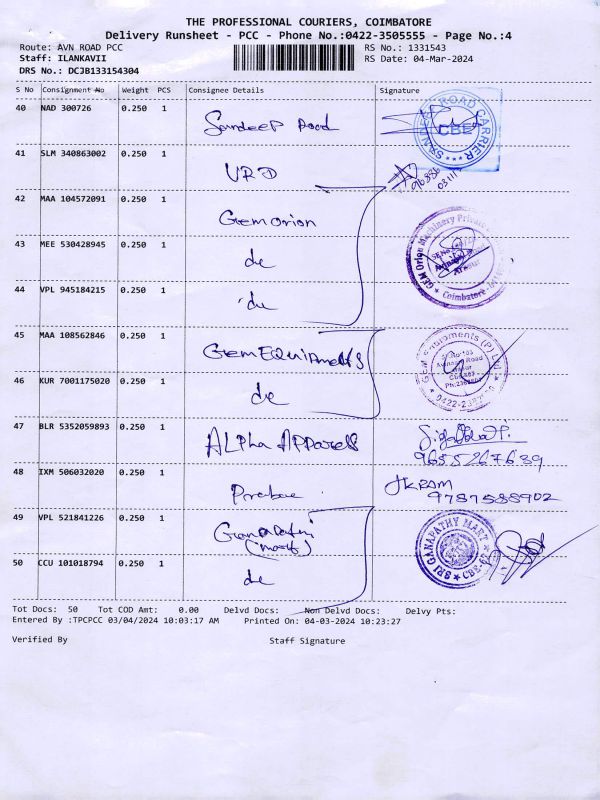 THE PROFESSIONAL COURIERS, COIMBATORE
Delivery Runsheet - PCC - Phone No.:0422-3505555 - Page No.:4
Route: AVN ROAD PCC RS No.: 1331543
Staff: ILANKAVII RS Date: 04-Mar-2024
DRS No.: DCJB133154304
S No Consignment No Weight PCS Consignee Details Signature
40 NAD 300726 0.250 1 Sandeep Road
SANDEEP ROAD CARRIER CBE
41 SLM 340863002 0.250 1 URD
42 MAA 104572091 0.250 1 Gem orion
43 MEE 530428945 0.250 1 do
GEM Orion Machinery Private
Coimbatore
44 VPL 945184215 0.250 1 do
45 MAA 108562846 0.250 1 Gem EQUiPments
GEM Equipments (P) Ltd
Avinashi Road
46 KUR 7001175020 0.250 1 do
47 BLR 5352059893 0.250 1 ALPha APParels
9655267639
48 IXM 506032020 0.250 1 JKRAM
9787588902
49 VPL 521841226 0.250 1 Ganapathi
(mart)
SRI GANAPATHY MART CBE
50 CCU 101018794 0.250 1 do
Tot Docs: 50 Tot COD Amt: 0.00 Delvd Docs: Non Delvd Docs: Delvy Pts:
Entered By :TPCPCC 03/04/2024 10:03:17 AM Printed On: 04-03-2024 10:23:27
Verified By Staff Signature